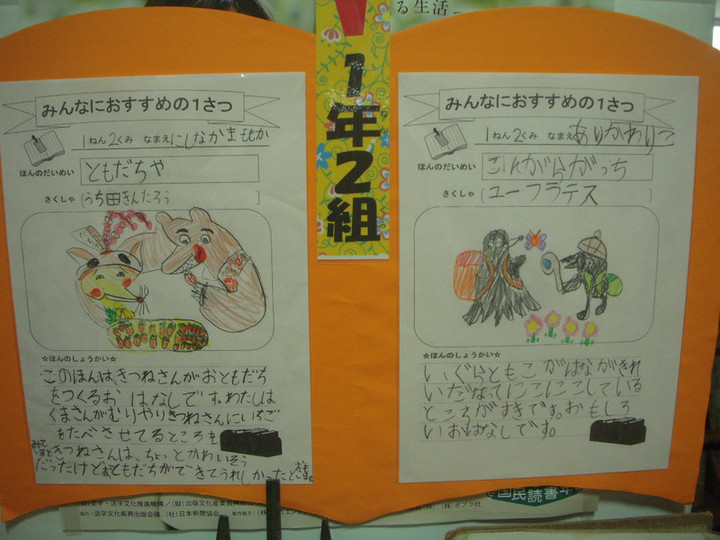 る生活
1年2組
みんなにおすすめの1さつ
1ねん2くみ なまえ にしなかまもか
ほんのだいめい ともだちや
さくしゃ (うち田きんたろう)
☆ほんのしょうかい☆
このほんは、きつねさんがおともだち
をつくるお はなしです。わたしは
くまさんがむりやりきつねさんにいちご
をたべさせてるところを
みて きつねさんは、ちょっとかわいそう
だったけどおともだちができてうれしかったと
みんなにおすすめの1さつ
1ねん2くみ なまえ ありかわりこ
ほんのだいめい こんがらがっち
さくしゃ (ユーフラテス)
☆ほんのしょうかい☆
いぐらともこ がはながきれ
いだなってにこにこしている
ところがすきです。おもしろ
いおはなしです。
字・活字文化推進機構/(財)出版文化産業
協力:活字文化振興出版会議、(社)日本新聞協会 製作協力:(株)
(株)ポプラ社
国民読書年